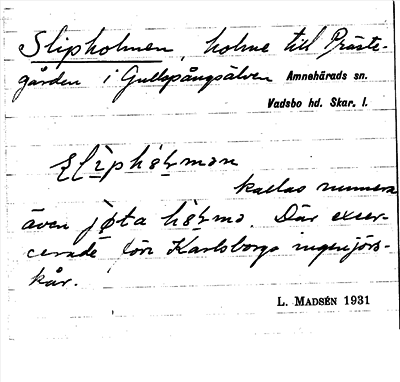 Slipholmen, holme till Präste-
gården i Gullspångsälven Amnehärads sn.
Vadsbo hd. Skar. l.
sliphólman
kallas numera
även jøta hólma. Där exser-
cerade förr Karlsborgs ingenjörs-
kår.
L. MADSÉN 1931